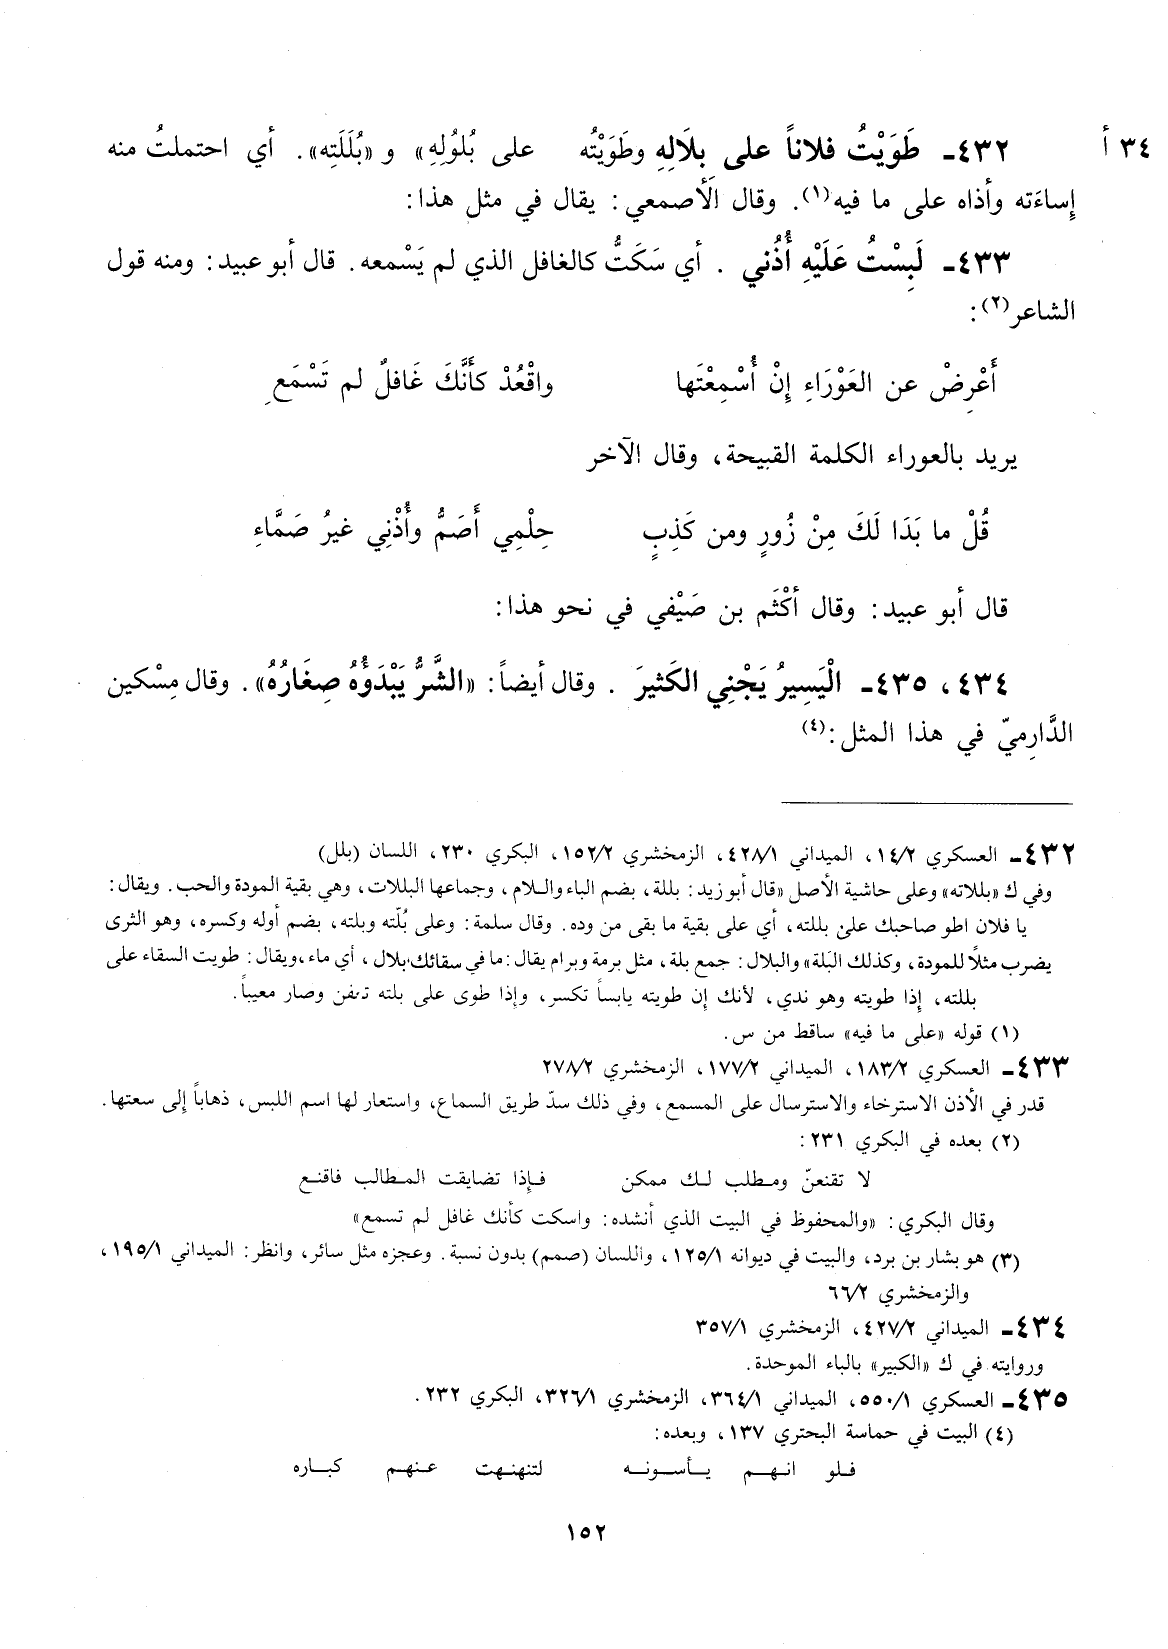 ٣٤ أ
٤٣٢ـ طَوَيْتُ فلاناً على بِلَالِهِ وطَوَيْتُه على بُلُولِهِ» و «بُلَلَتِه». أي احتملتُ منه
إِساءَته وأذاه على ما فيه(١). وقال الأصمعي: يقال في مثل هذا:
٤٣٣ـ لَبِسْتُ عَلَيْهِ أُذُني . أي سَكَتُّ كالغافل الذي لم يَسْمعه. قال أبو عبيد: ومنه قول
الشاعر(٢):
أَعْرِضْ عن العَوْرَاءِ إِنْ أُسْمِعْتَها واقْعُدْ كأَنَّكَ غَافلٌ لم تَسْمَعِ
يريد بالعوراء الكلمة القبيحة، وقال الآخر
قُلْ ما بَدَا لَكَ مِنْ زُورٍ ومن كَذِبٍ حِلْمِي أَصَمُّ وأُذْنِي غيرُ صَمَّاءِ
قال أبو عبيد: وقال أكْثَم بن صَيْفي في نحو هذا:
٤٣٤، ٤٣٥ـ الْيَسِيرُ يَجْنِي الكَثيرَ . وقال أيضاً: «الشَّرُّ يَبْدَؤُهُ صِغَارُهُ». وقال مِسْكين
الدَّارِميّ في هذا المثل:(٤)
٤٣٢ـ العسكري ١٤/٢، الميداني ٤٢٨/١، الزمخشري ١٥٢/٢، البكري ٢٣٠، اللسان (بلل)
وفي ك «بللاته» وعلى حاشية الأصل «قال أبو زيد: بللة، بضم الباء واللام، وجماعها البللات، وهي بقية المودة والحب. ويقال:
يا فلان اطو صاحبك على بللته، أي على بقية ما بقى من وده. وقال سلمة: وعلى بُلّته وبلته، بضم أوله وكسره، وهو الثرى
يضرب مثلًا للمودة، وكذلك البَلة» والبلال: جمع بلة، مثل برمة وبرام يقال: ما في سقائك بلال، أي ماء، ويقال: طويت السقاء على
بللته، إذا طويته وهو ندي، لأنك إن طويته يابساً تكسر، وإذا طوى على بلته تعفن وصار معيباً.
(١) قوله «على ما فيه» ساقط من س.
٤٣٣ـ العسكري ١٨٣/٢، الميداني ١٧٧/٢، الزمخشري ٢٧٨/٢
قدر في الأذن الاسترخاء والاسترسال على المسمع، وفي ذلك سدّ طريق السماع، واستعار لها اسم اللبس، ذهاباً إلى سعتها.
(٢) بعده في البكري ٢٣١:
لا تقنعنّ ومطلب لك ممكن فإذا تضايقت المطالب فاقنع
وقال البكري: «والمحفوظ في البيت الذي أنشده: واسكت كأنك غافل لم تسمع»
(٣) هو بشار بن برد، والبيت في ديوانه ١٢٥/١، واللسان (صمم) بدون نسبة. وعجزه مثل سائر، وانظر: الميداني ١٩٥/١،
والزمخشري ٦٦/٢
٤٣٤ـ الميداني ٤٢٧/٢، الزمخشري ٣٥٧/١
وروايته في ك «الكبير» بالباء الموحدة.
٤٣٥ـ العسكري ٥٥٠/١، الميداني ٣٦٤/١، الزمخشري ٣٢٦/١، البكري ٢٣٢.
(٤) البيت في حماسة البحتري ١٣٧، وبعده:
فلو انهم يأسونه لتنهنهت عنهم كباره
١٥٢